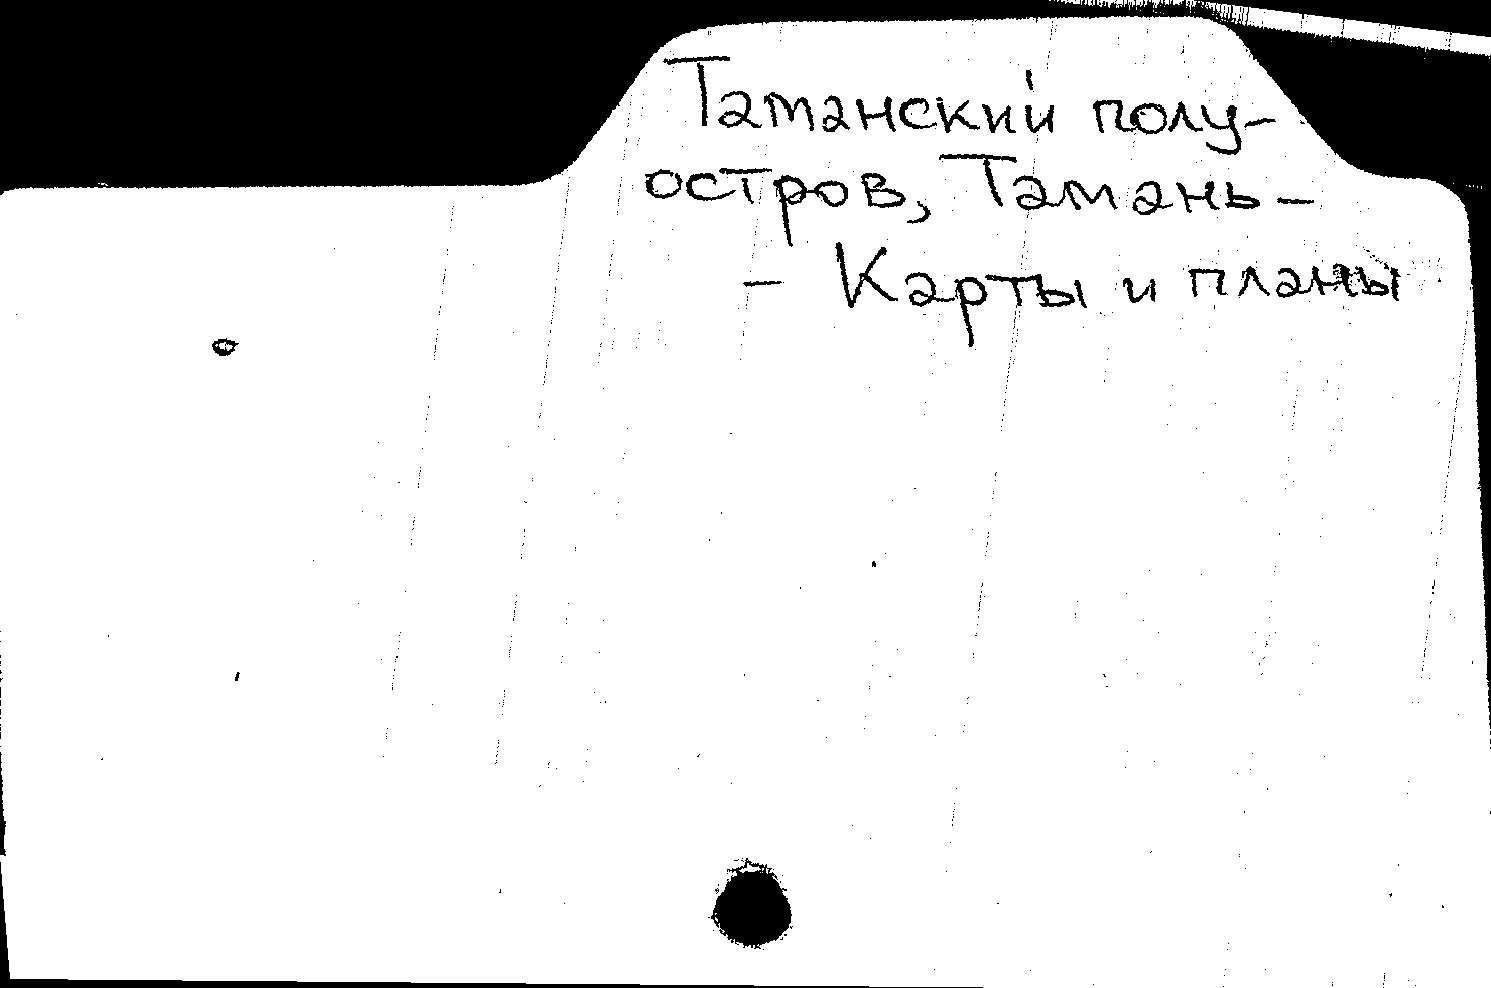 Таманский полу-
остров, Тамань-
- Карты и планы